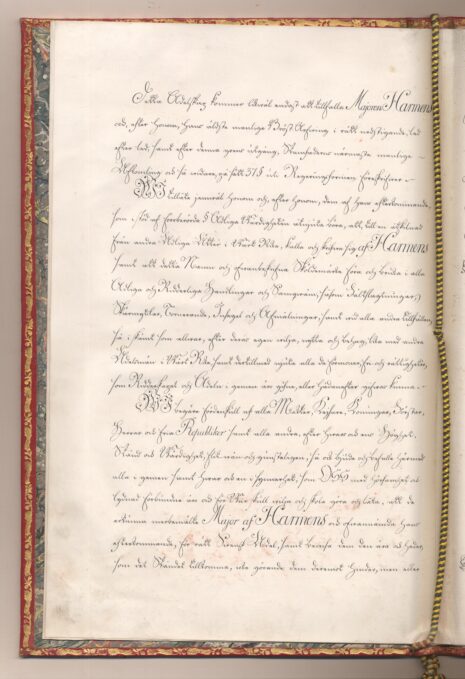 Detta Adelskap kommer likväl endast att tillfalla Majoren Harmens
och, efter honom, hans äldste manlige Bröst-Arfvinge i rätt nedstigande led
efter led, samt efter denna grens utgång, Stamfaderns närmaste manlige
Afkomling och så vidare, på sätt 37 § i Regeringsformen föreskrifver.
Wi tillåta jemväl honom och, efter honom, dem af hans efterkommande,
som i stöd af förberörde § Adliga Värdigheten åtnjuta böra, att, till en åtskilnad
från andre Adlige Ätter i Vårt Rike, kalla och skrifva sig af Harmens
samt att detta Namn och Sköldemärke föra och bruka i alla
Adliga och Ridderliga Handlingar och såsom Fältslagtningar,
Skärmytslar, Tornerande, Insegel och Afmålningar, samt vid alla andra tillfällen,
så i skämt som allvar, efter deras egen vilja, nytta och behag, lika med andra
Adelsmän i Vårt Rike, samt dertill med njuta alla de förmoner, fri- och rättigheter,
som Ridderskapet och Adeln i gemen äro gifne, eller hädanefter gifvas kunna.
Wi begäre fördenskull af alla Magter, Kejsare, Konungar, Förstar,
Herrar och fria Republiker samt alla andra, efter hvars och ens Höghet,
Stånd och Värdighet, så ock bjude och befalle härmed
alla i gemen samt hvar och en i synnerhet, som Oss med hörsamhet och
lydnad förbundne äro och för Vår skull vilja och skola göra och låta, att de
erkänna merbemälte Major af Harmens och framdeles hans
efterkommande, för rätt Svensk Adel, samt bevisa dem den ära och heder,
som det Ståndet tillkomma, icke görande dem deremot hinder, men eller